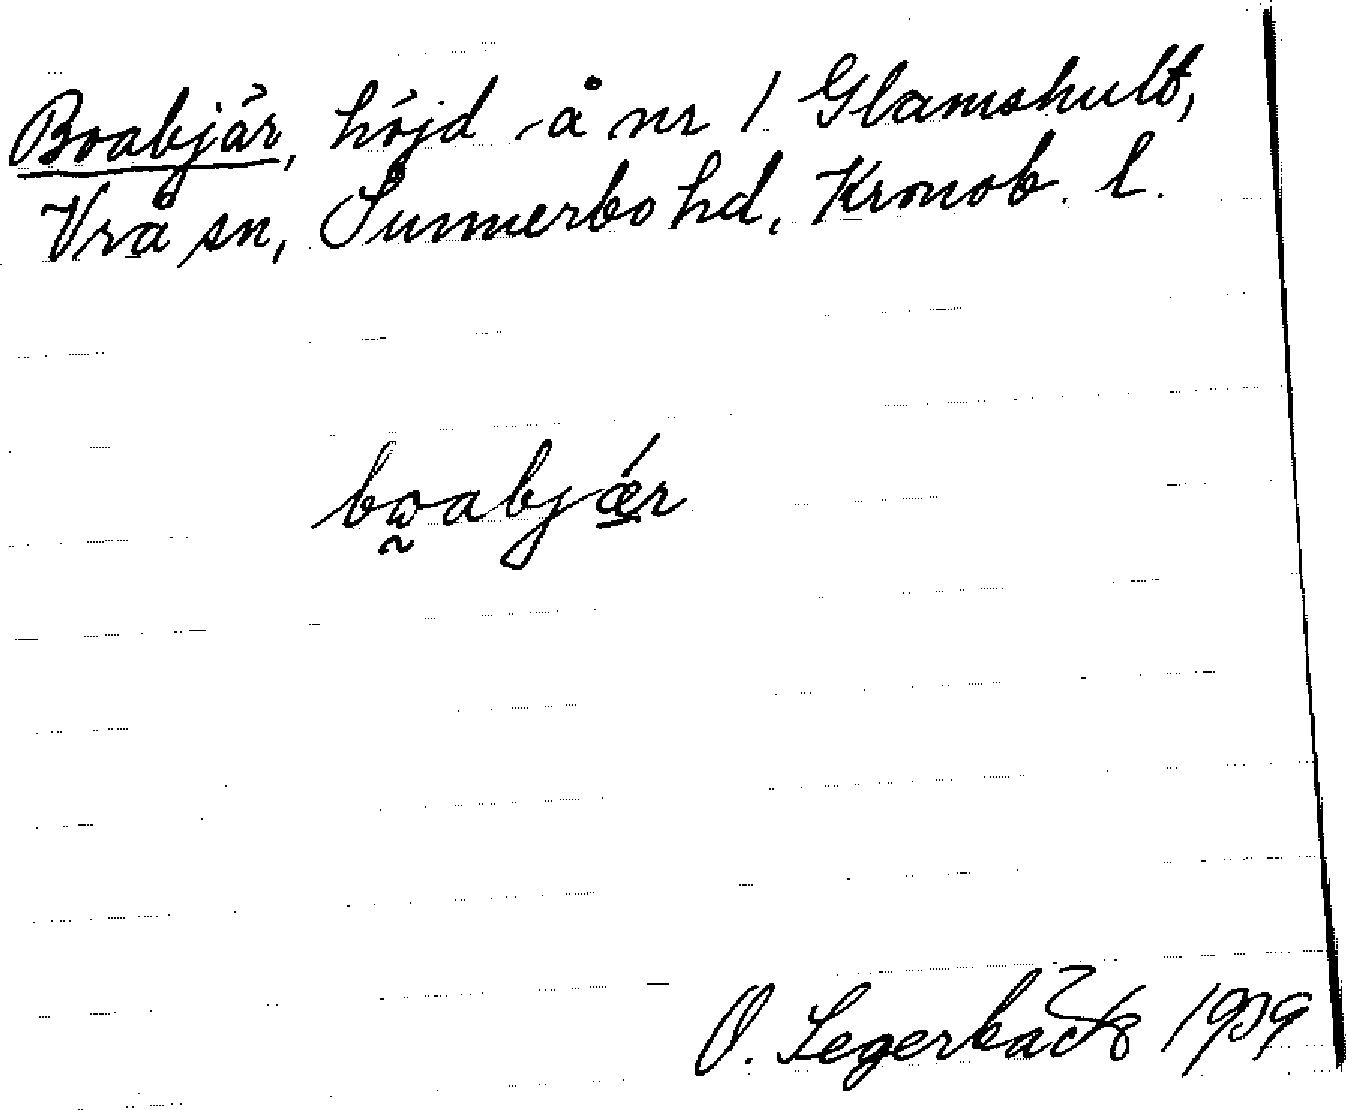 Boabjär, höjd å nr 1 Glamshult,
Vrå sn, Sunnerbo hd, Kronob. l.
bω̰abjǽ̲r
O. Segerbäck 1939